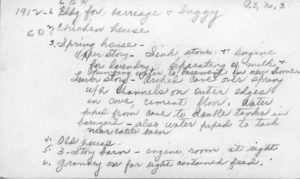 L & R
P.S, No. 3
1912 - 1. Bldg for carriage & buggy
60
2. Chicken house
3. Spring house -
Upper story - Sink, stove & engine
for laundry. Separating of milk &
pumping water to basement in new house
Lower story - trough cave over spring
with channels on outer edges
in cove, cement floor. Water
piped from cave to double tanks in
barnyard - also water piped to tank
near cattle barn
4. Old house -
5. 3-story barn - engine room at right
6. Granary on far right contained feed.